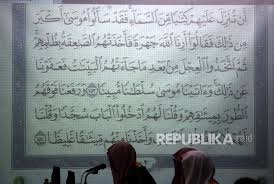 أَن تُنَزِّلَ عَلَيْهِمْ كِتَٰبًا مِّنَ ٱلسَّمَآءِ فَقَدْ سَأَلُوا۟ مُوسَىٰٓ أَكْبَرَ
مِن ذَٰلِكَ فَقَالُوٓا۟ أَرِنَا ٱللَّهَ جَهْرَةً فَأَخَذَتْهُمُ ٱلصَّٰعِقَةُ بِظُلْمِهِمْ
ثُمَّ ٱتَّخَذُوا۟ ٱلْعِجْلَ مِنۢ بَعْدِ مَا جَآءَتْهُمُ ٱلْبَيِّنَٰتُ فَعَفَوْنَا
عَن ذَٰلِكَ وَءَاتَيْنَا مُوسَىٰ سُلْطَٰنًا مُّبِينًا ١٥٣ وَرَفَعْنَا فَوْقَهُمُ
ٱلطُّورَ بِمِيثَٰقِهِمْ وَقُلْنَا لَهُمُ ٱدْخُلُوا۟ ٱلْبَابَ سُجَّدًا وَقُلْنَا
لَهُمْ وَأَخَذْنَا مِنْهُم مِّيثَٰقًا غَلِيظًا
REPUBLIKA.co.id